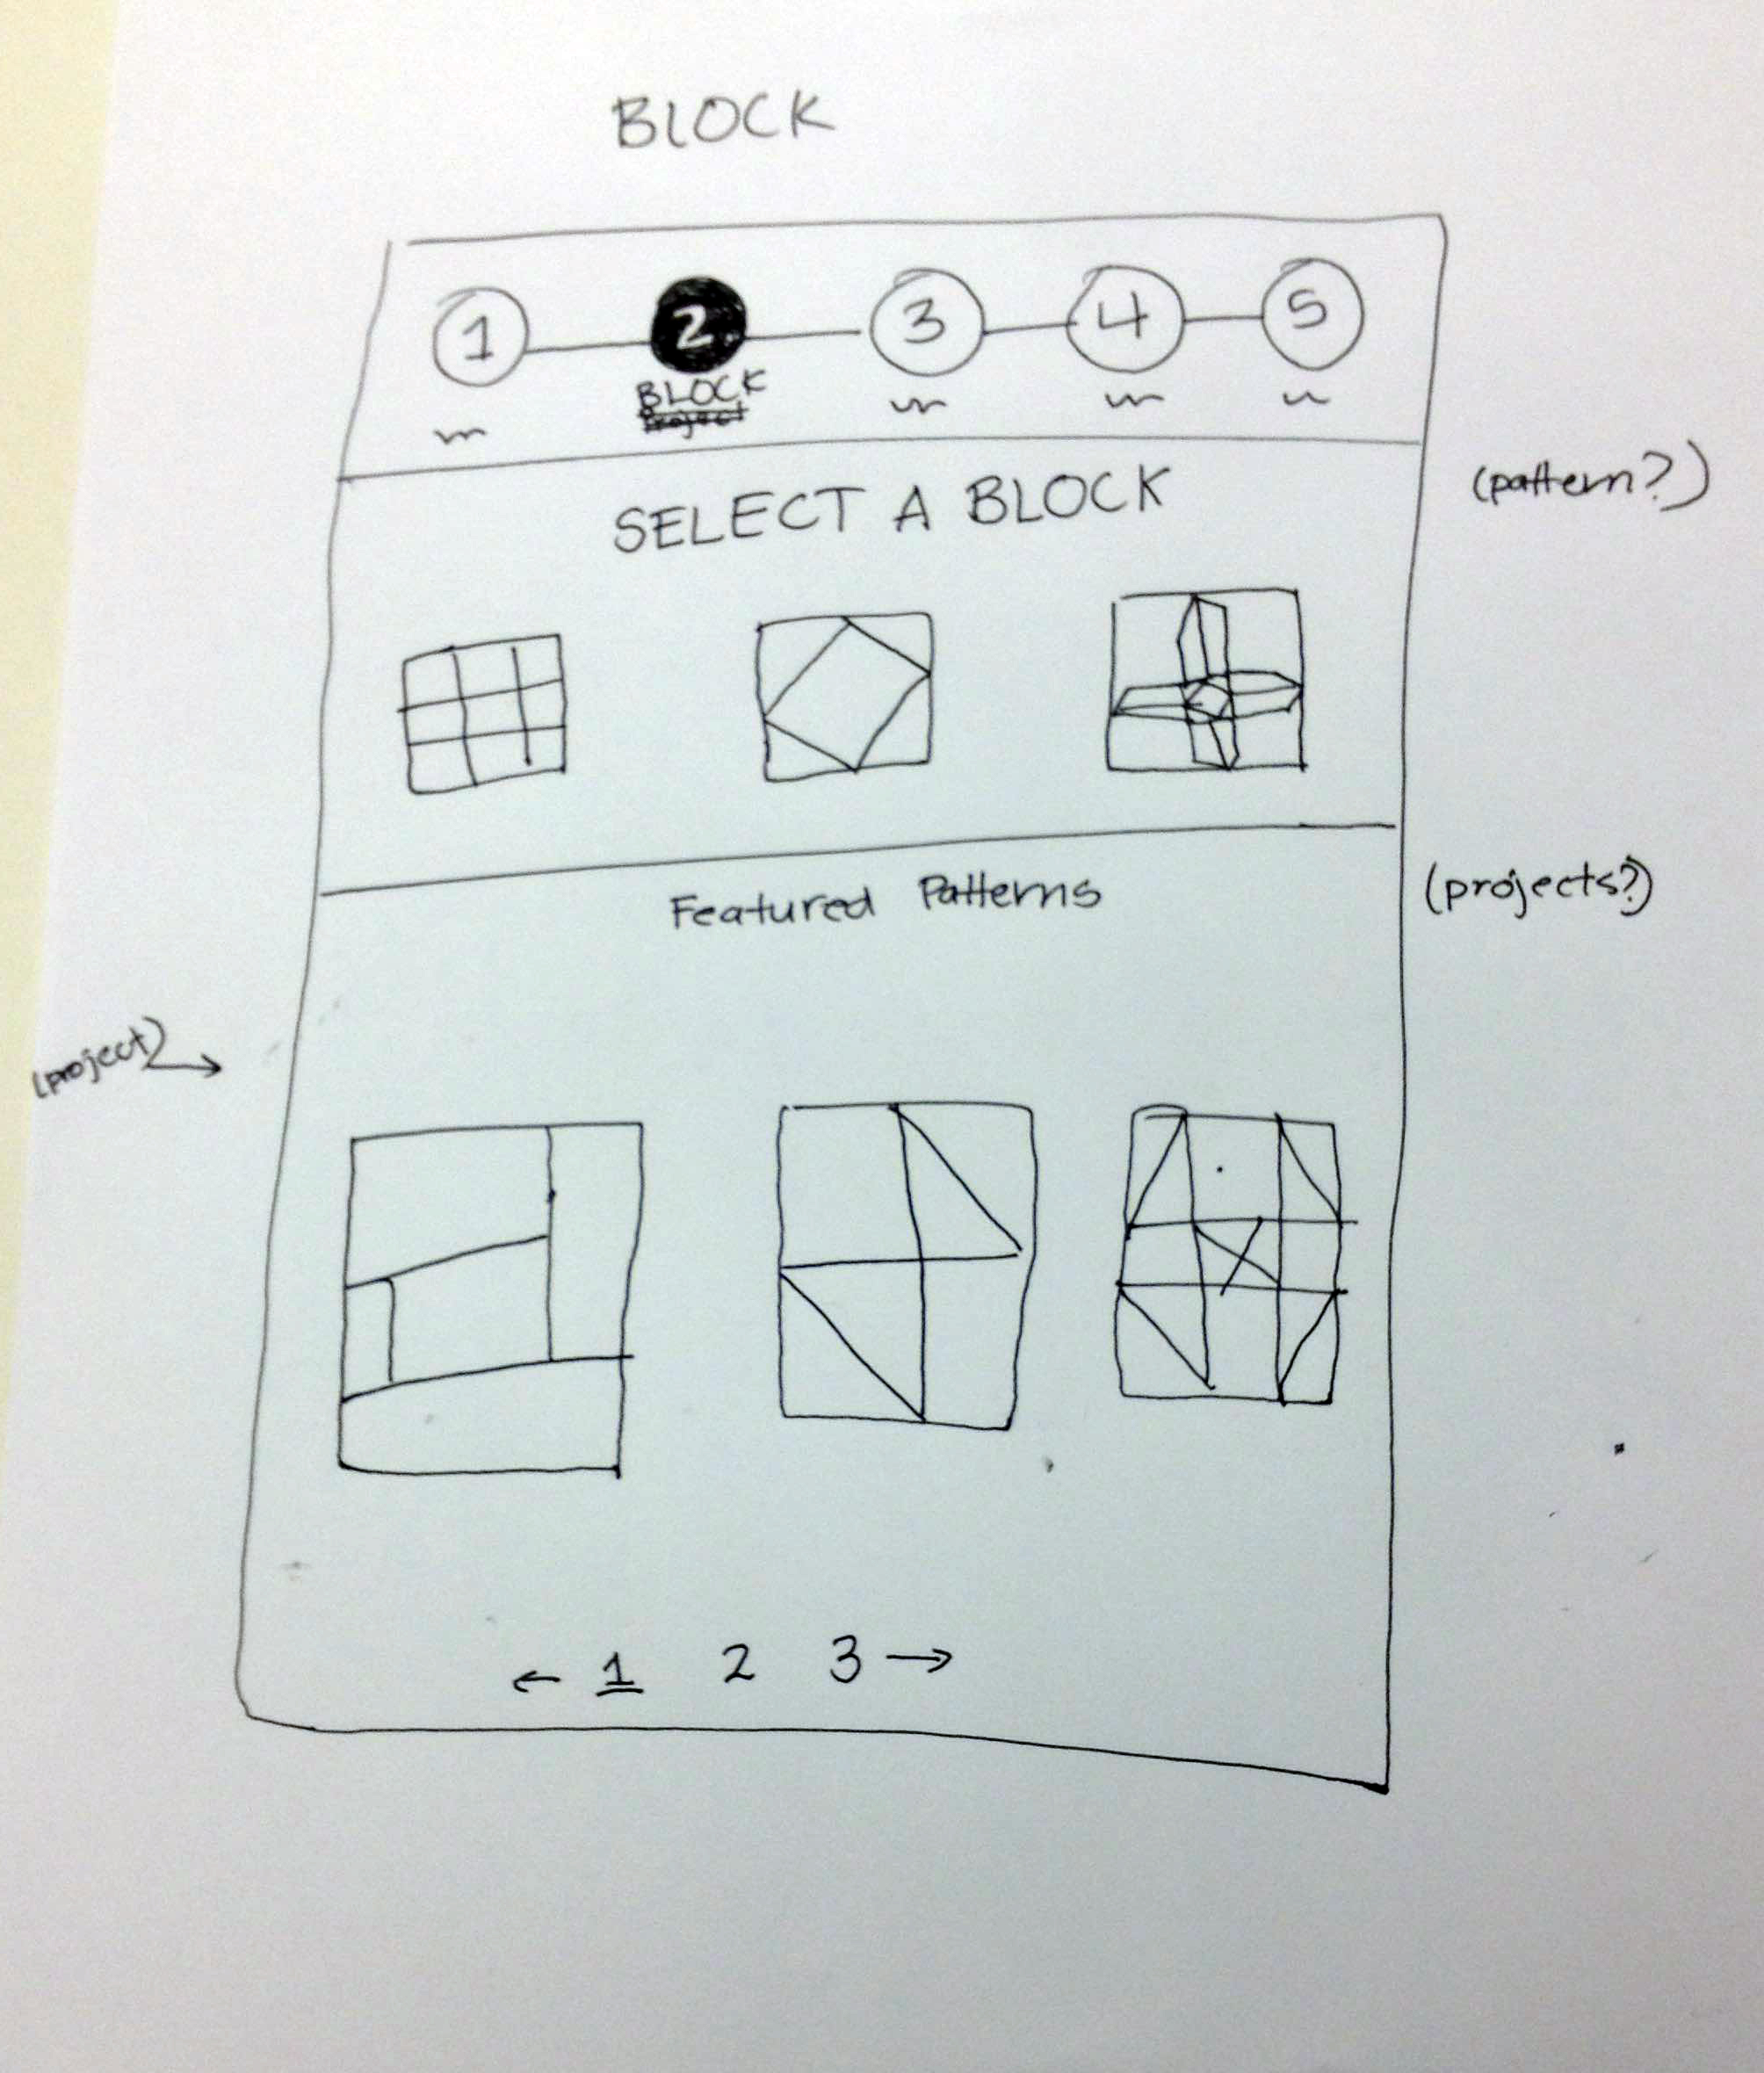 BLOCK
1 2 3 4 5
BLOCK
Project
SELECT A BLOCK
(pattern?)
Featured Patterns
(projects?)
(project)
← 1 2 3 →